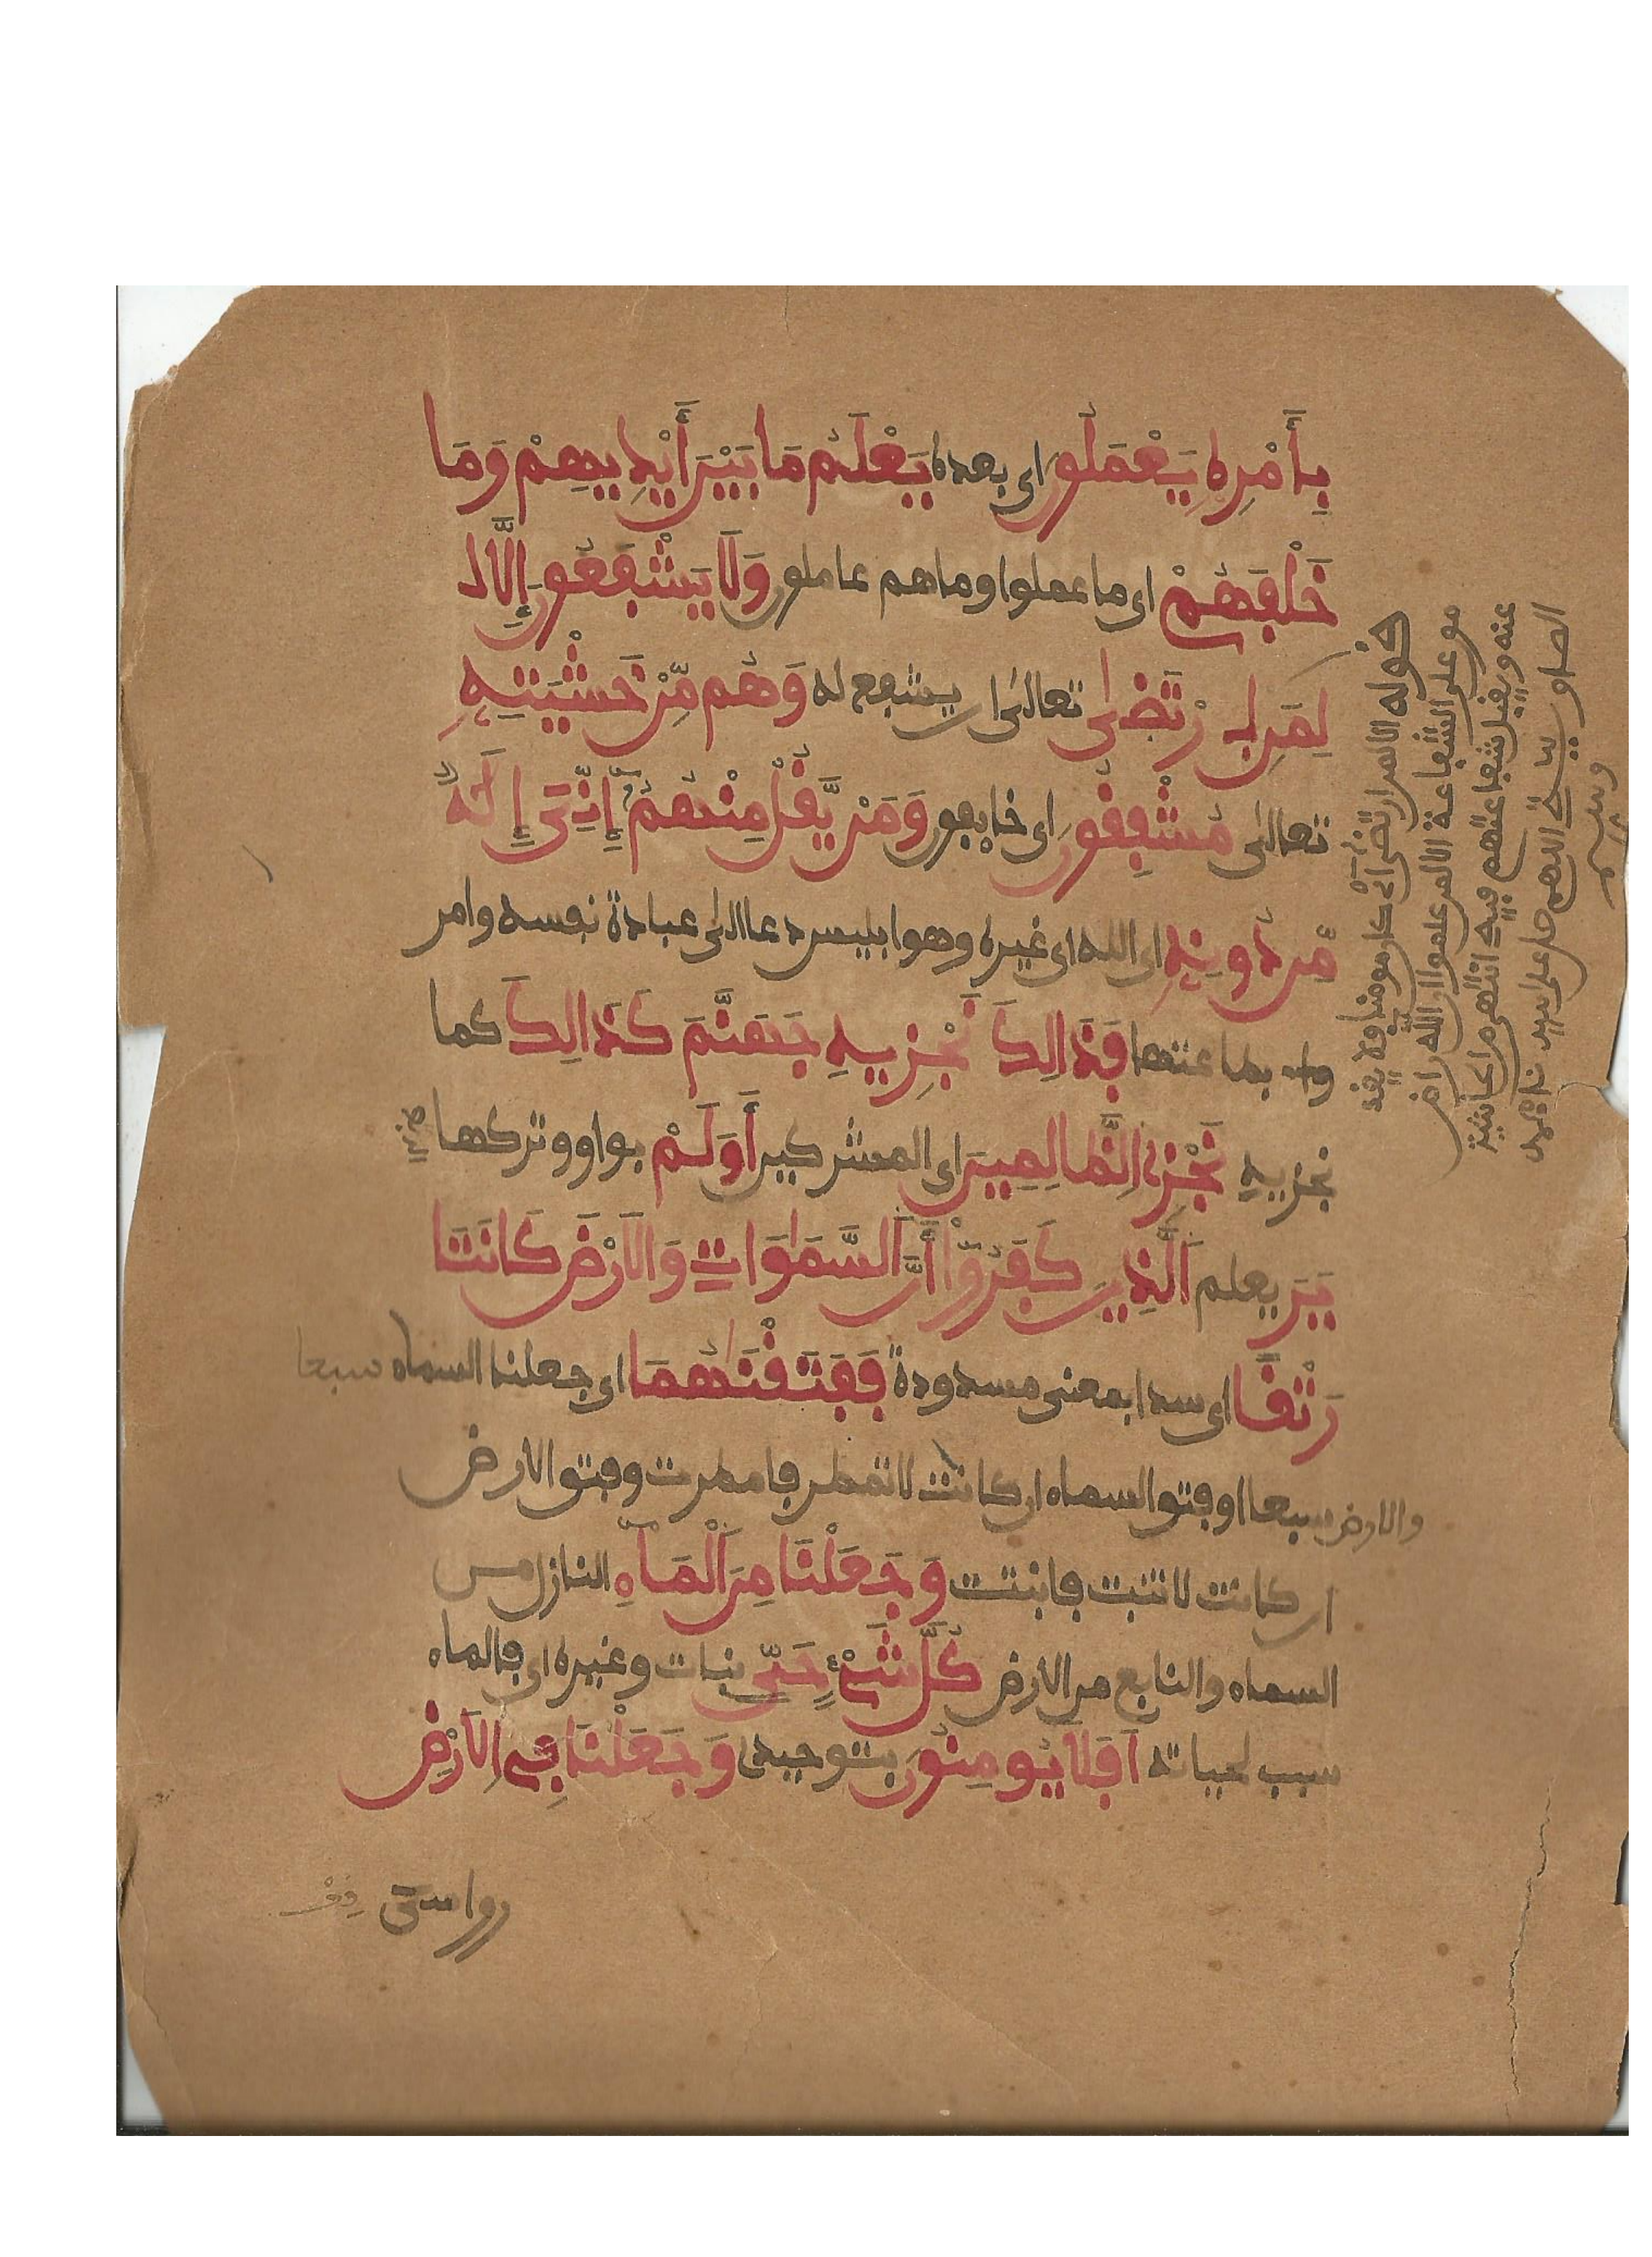 بِأَمْرِهِ يَعْمَلُونَ اى بعده يَعْلَمُ مَا بَيْنَ أَيْدِيهِمْ وَمَا
خَلْفَهُمْ اى ما عملوا وما هم عاملون وَلَا يَشْفَعُونَ إِلَّا
لِمَنِ اِرْتَضَىٰ تعالىٰ ان يشفع له وَهُم مِّنْ خَشْيَتِهِ
تعالىٰ مُشْفِقُونَ اى خايفون وَمَنْ يَّقُلْ مِنْهُمْ إِنِّيَ إِلَٰهٌ
مِّن دُونِهِ اى الله اى غيره وهو ابليس دعا الىٰ عبادة نفسه وامر
بطاعتها فَذَالِكَ نَجْزِيهِ جَهَنَّمَ كَذَالِكَ كما
نجزيه نَجْزِي الظَّالِمِينَ اى المشركين أَوَلَمْ بواو وتركها
يَرَ يعلم الَّذِينَ كَفَرُوا أَنَّ السَّمَٰوَاتِ وَالَارْضَ كَانَتَا
رَتْقًا اى سدا بمعنى مسدودة فَفَتَقْنَٰهُمَا اى جعلنا السماء سبعا
والارض سبعا او فتق السماء ان كانت لا تمطر فامطرت وفتق الارض
ان كانت لا تنبت فانبتت وَجَعَلْنَا مِنَ الْمَاءِ النازل من
السماء والنابع من الارض كُلَّ شَيْءٍ حَيٍّ نبات وغيره اى فالماء
سبب لحياته اَفَلَا يُومِنُونَ بتوحيدى وَجَعَلْنَا فِي الَارْضِ
رواسى
قوله الا لمن ارتضى اى كان مومنا ولا يقد
مو على الشفاعة الا لمن علموا ان الله راض
عنه ويقبل شفاعتهم فيه انتهى من الحاشية